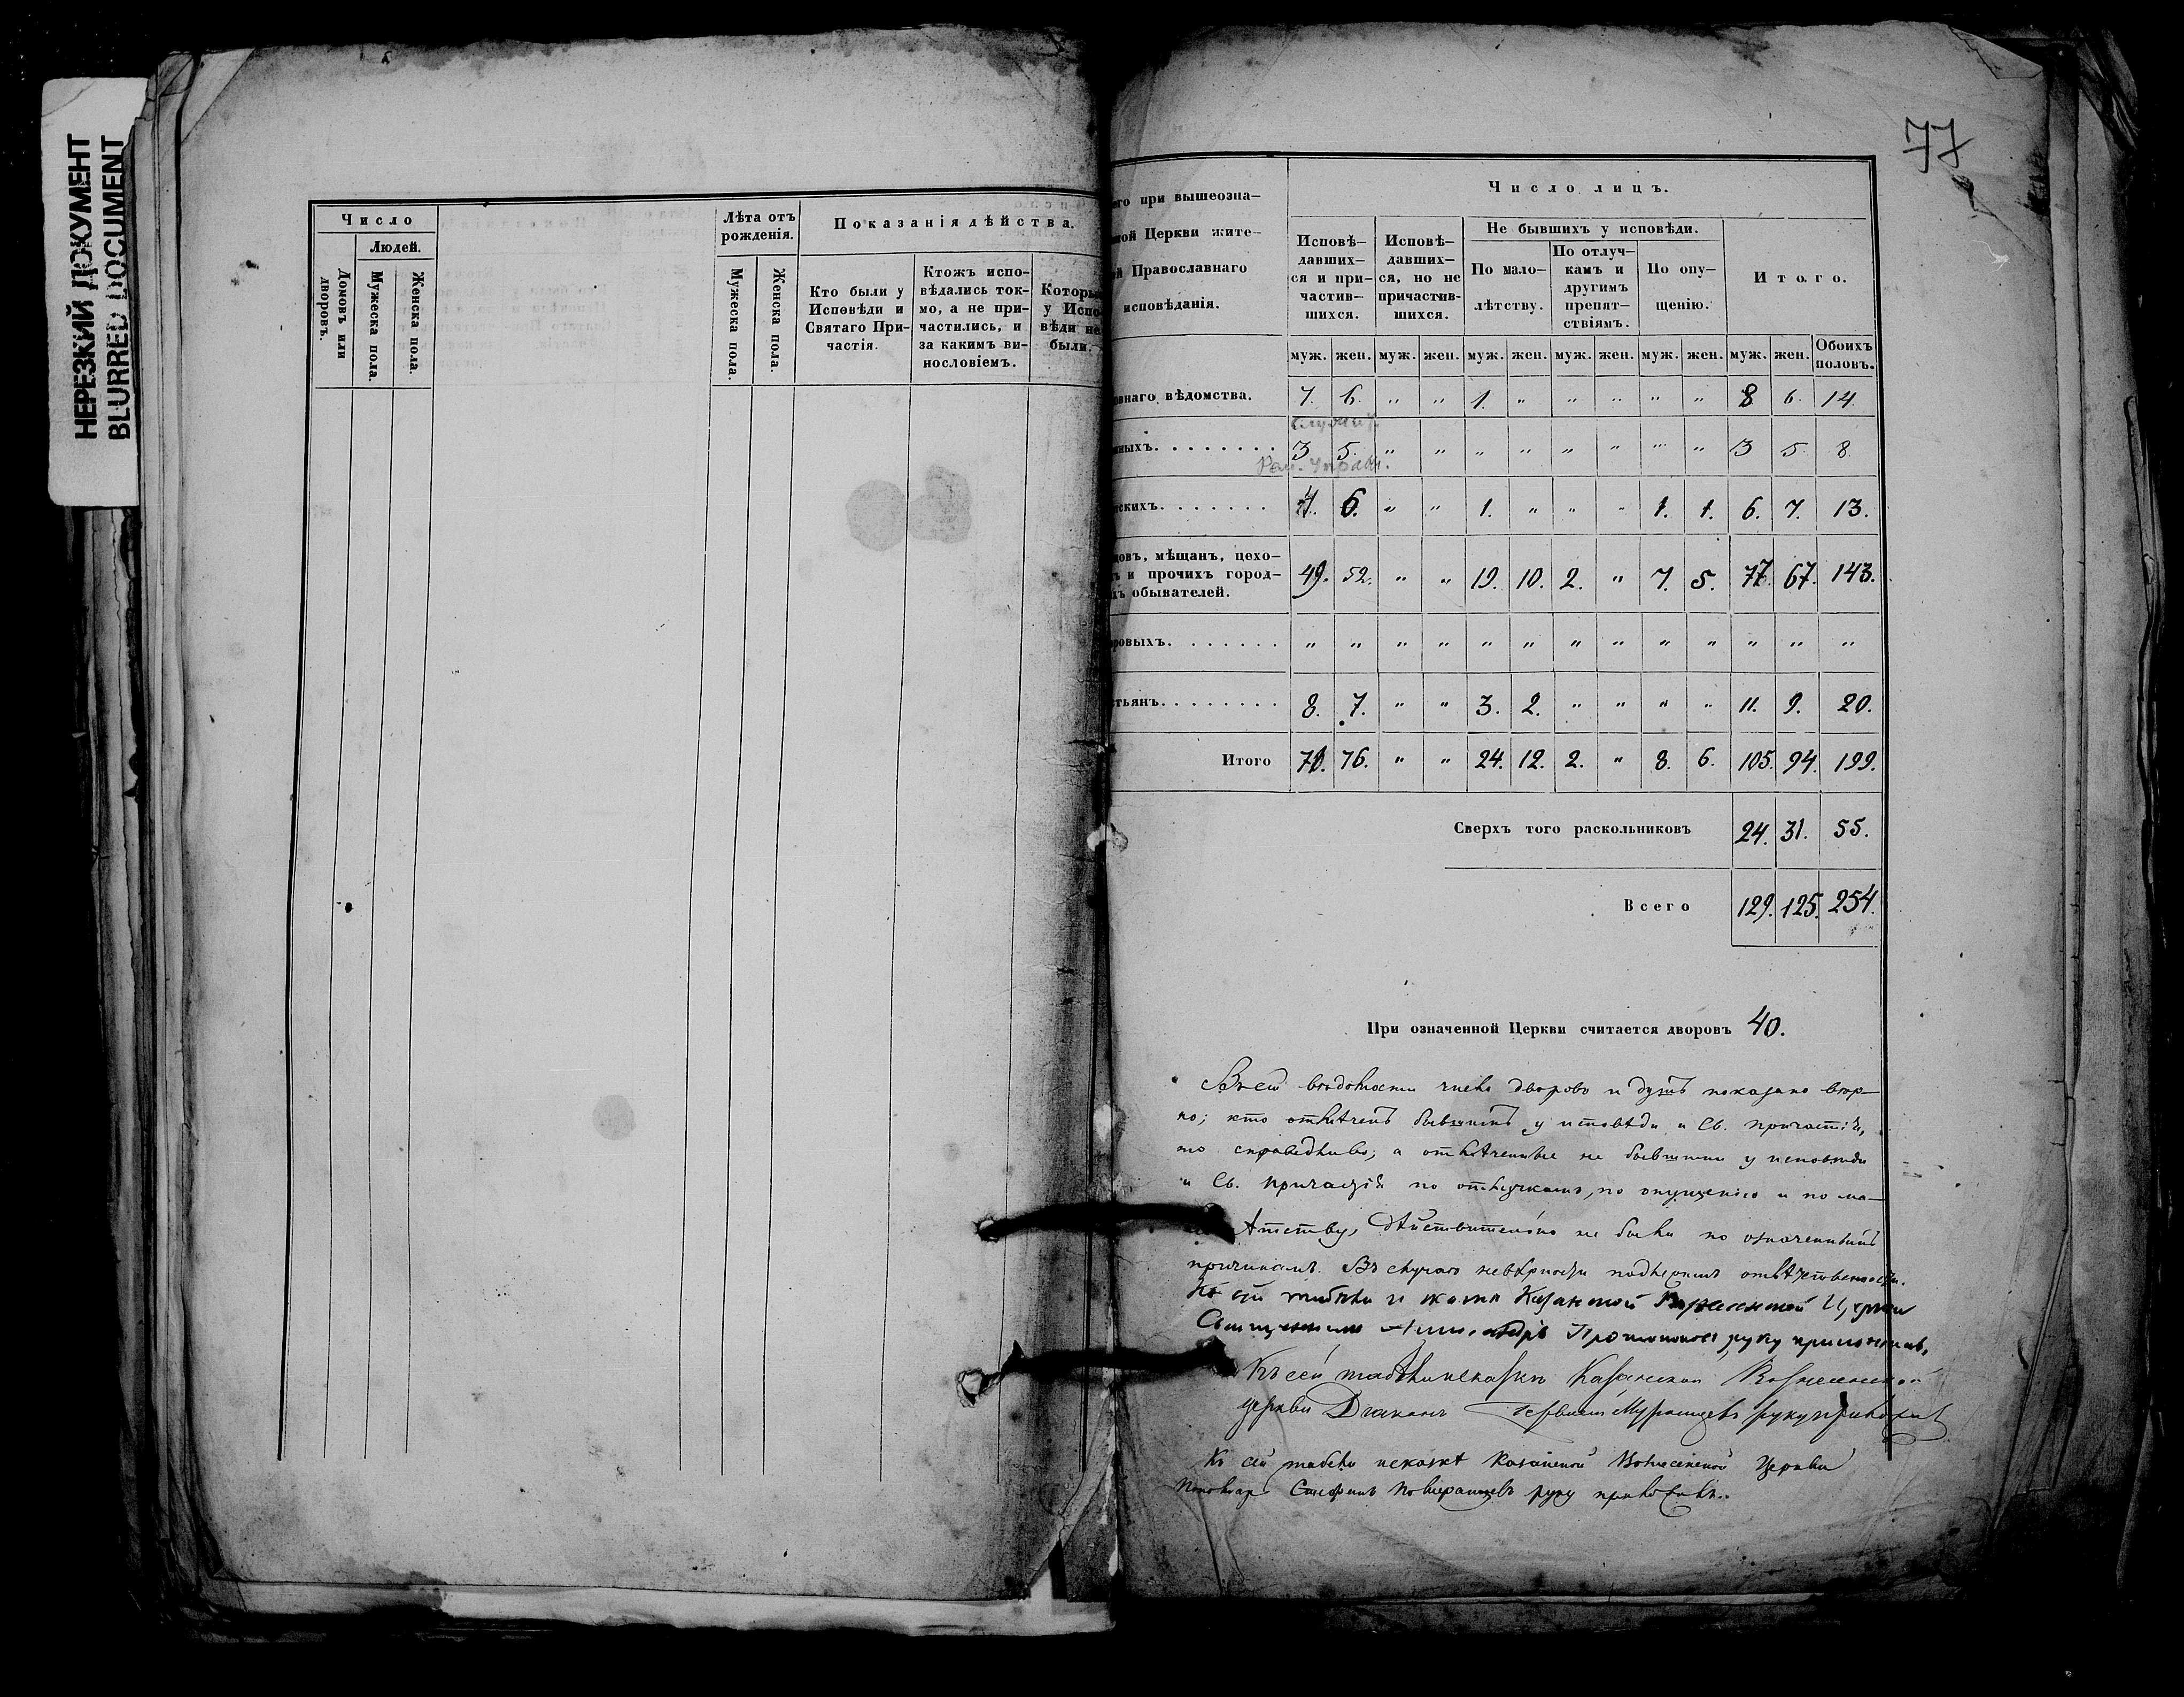 НЕРЕЗКИЙ ДОКУМЕНТ
BLURRED DOCUMENT
Число
Людей.
Домовъ или дворовъ.
Мужеска пола.
Женска пола.
Лѣта отъ рожденія.
Мужеска пола.
Женска пола.
Показанія дѣйства.
Кто были у
Исповѣди и
Святаго При-
частія.
Ктожъ испо-
вѣдались ток-
мо, а не при-
частились, и
за какимъ ви-
нословіемъ.
Которы
у Испо-
вѣди не
были.
77
его при вышеозна-
ной Церкви жите-
й Православнаго
исповѣданія.
Число лицъ.
Исповѣ-
давших-
ся и при-
частив-
шихся.
Исповѣ-
давших-
ся, но не
причастив-
шихся.
Не бывшихъ у исповѣди.
По мало-
лѣтству.
По отлуч-
камъ и
другимъ
препят-
ствіямъ.
По опу-
щенію.
Итого.
муж. жен. муж. жен. муж. жен. муж. жен. муж. жен. муж. жен. Обоихъ половъ.
овнаго вѣдомства. 7. 6. " " 1. " " " " " 8 6. 14.
нныхъ. 3 5. " " " " " " " " 3 5 8.
тскихъ. 4. 6. " " 1. " " " 1. 1. 6. 7. 13.
цовъ, мѣщанъ, цехо-
ъ и прочихъ город-
хъ обывателей. 49. 52. " " 19. 10. 2. " 7. 5. 77. 67. 143.
ровыхъ. " " " " " " " " " " " " "
стьянъ. 8. 7. " " 3. 2. " " " " 11. 9. 20.
Итого 71. 76. " " 24. 12. 2. " 8. 6. 105. 94. 199.
Сверхъ того раскольниковъ 24. 31. 55.
Всего 129. 125. 254.
При означенной Церкви считается дворовъ 40.
В сей вѣдомости число дворовъ и душъ показано вѣр-
но; кто отмѣченъ бывшимъ у исповѣди и Св. причастія,
то справедливо; а отмѣченные не бывшими у исповѣди
и Св. Причастія по отлучкамъ, по опущенію и по ма-
лѣтству, дѣйствительно не были по означеннымъ
причинамъ. Въ случаѣ невѣрности подлежимъ отвѣтственности.
Къ сей Казанской Вознесенской Церкви
Священникъ Александръ Протопоповъ руку приложилъ.
Къ сей Казанской Вознесенской
церкви Диаконъ руку приложилъ
Къ сей табели Казанской Вознесенской Церкви
Пономарь руку приложилъ.